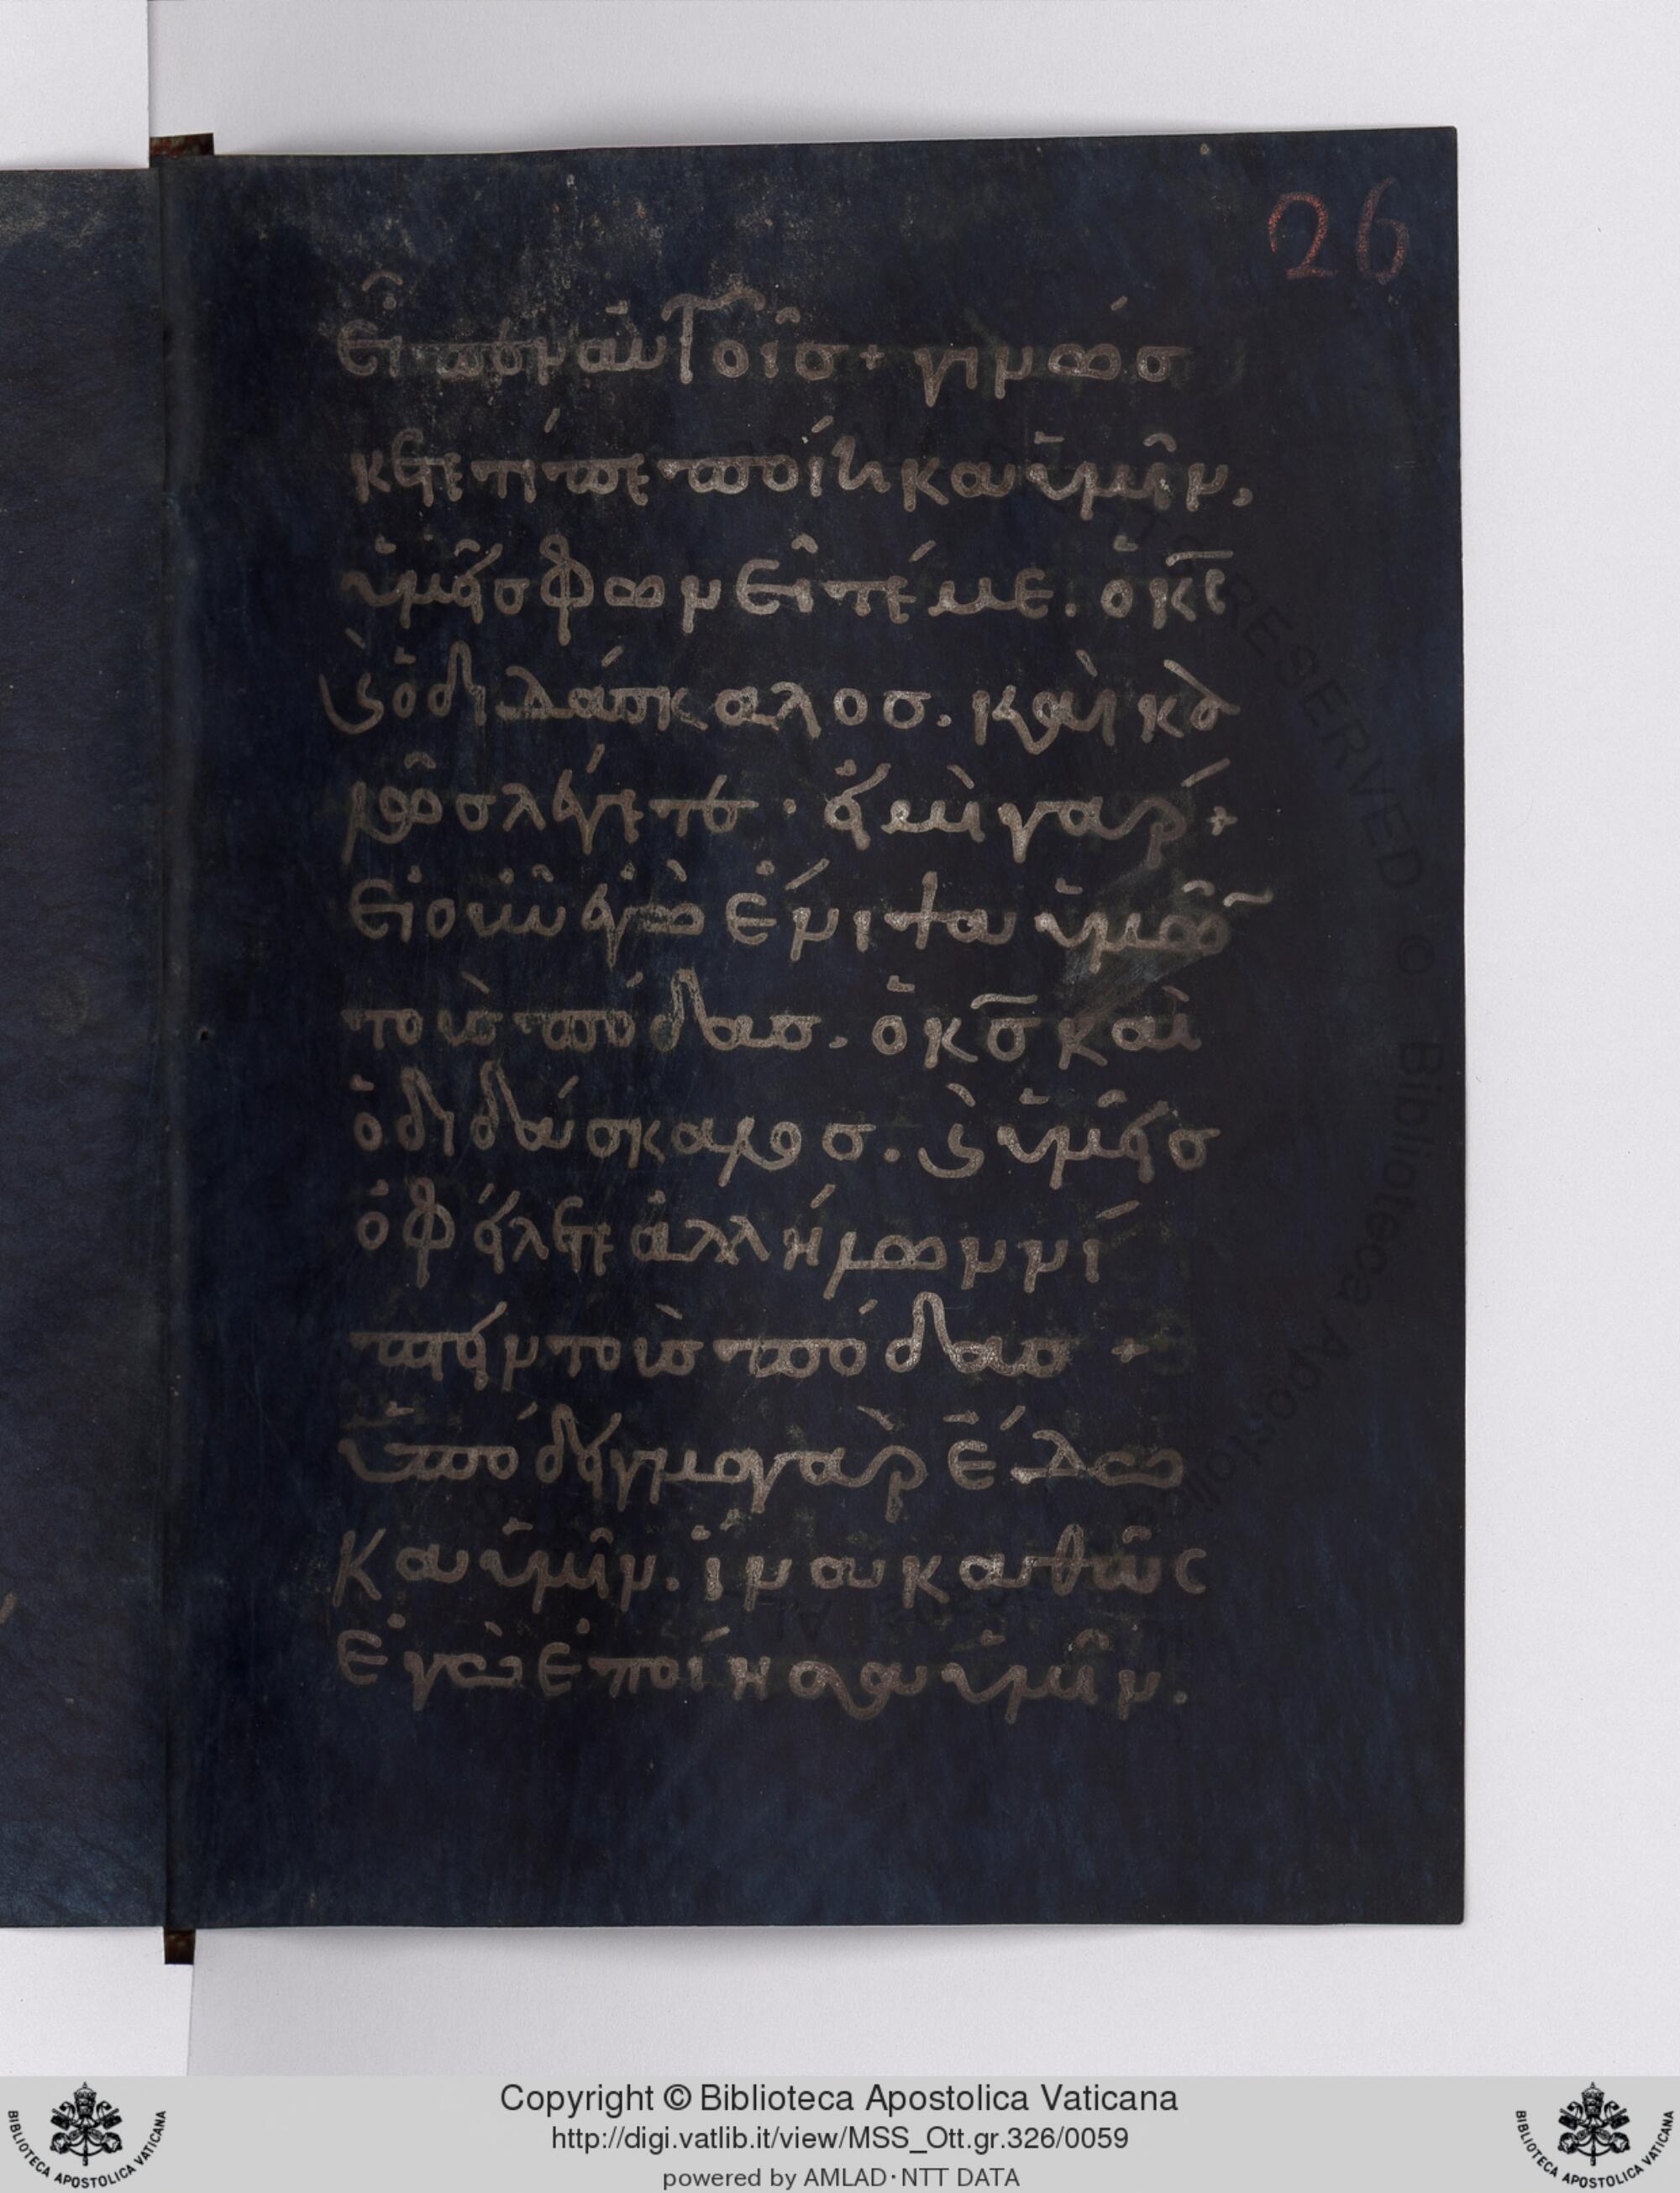 26
εἶπεν αὐτοῖς + γινώσ
κετε τί πεποίηκα ὑμῖν,
ὑμεῖς φωνεῖτέ με. ὁ κ̅ς̅
ϗ ὁ διδάσκαλος. καὶ κα
λῶς λέγετε · εἰμὶ γάρ +
εἰ οὖν ἐγὼ ἔνιψα ὑμῶν
τοὺς πόδας. ὁ κ̅ς̅ καὶ
ὁ διδάσκαλος. ϗ ὑμεῖς
ὀφείλετε ἀλλήλων νί
πτειν τοὺς πόδας +
ὑπόδειγμα γὰρ ἔδω
κα ὑμῖν. ἵνα καθὼς
ἐγὼ ἐποίησα ὑμῖν.
Copyright © Biblioteca Apostolica Vaticana
http://digi.vatlib.it/view/MSS_Ott.gr.326/0059
powered by AMLAD·NTT DATA
BIBLIOTECA APOSTOLICA VATICANA
BIBLIOTECA APOSTOLICA VATICANA